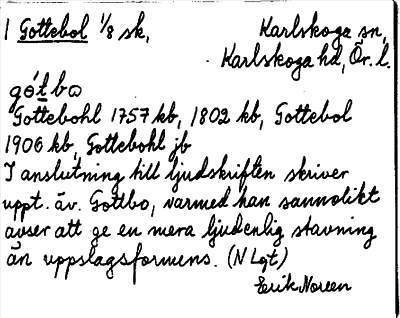 1 Gottebol 1/8 sk, Karlskoga sn,
Karlskoga hd, Ör. l.
gót bo
Gottebohl 1757 kb, 1802 kb, Gottebol
1906 kb, Gottebohl jb
I anslutning till ljudskriften skriver
uppt. äv. Gottbo, varmed han sannolikt
avser att ge en mera ljudenlig stavning
än uppslagsformens. (N Lgt)
Erik Noreen